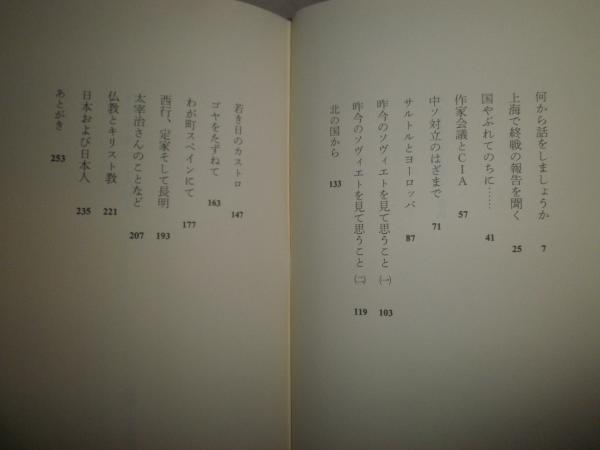 何から話をしましょうか 7
上海で終戦の報告を聞く 25
国やぶれてのちに…… 41
作家会議とCIA 57
中ソ対立のはざまで 71
サルトルとヨーロッパ 87
昨今のソヴィエトを見て思うこと ㈠ 103
昨今のソヴィエトを見て思うこと ㈡ 119
北の国から 133
若き日のカストロ 147
ゴヤをたずねて 163
わが町スペインにて 177
西行、定家そして長明 193
太宰治さんのことなど 207
仏教とキリスト教 221
日本および日本人 235
あとがき 253